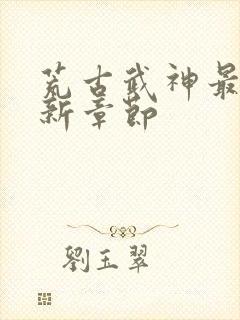 荒古武神最
新章節
劉玉翠